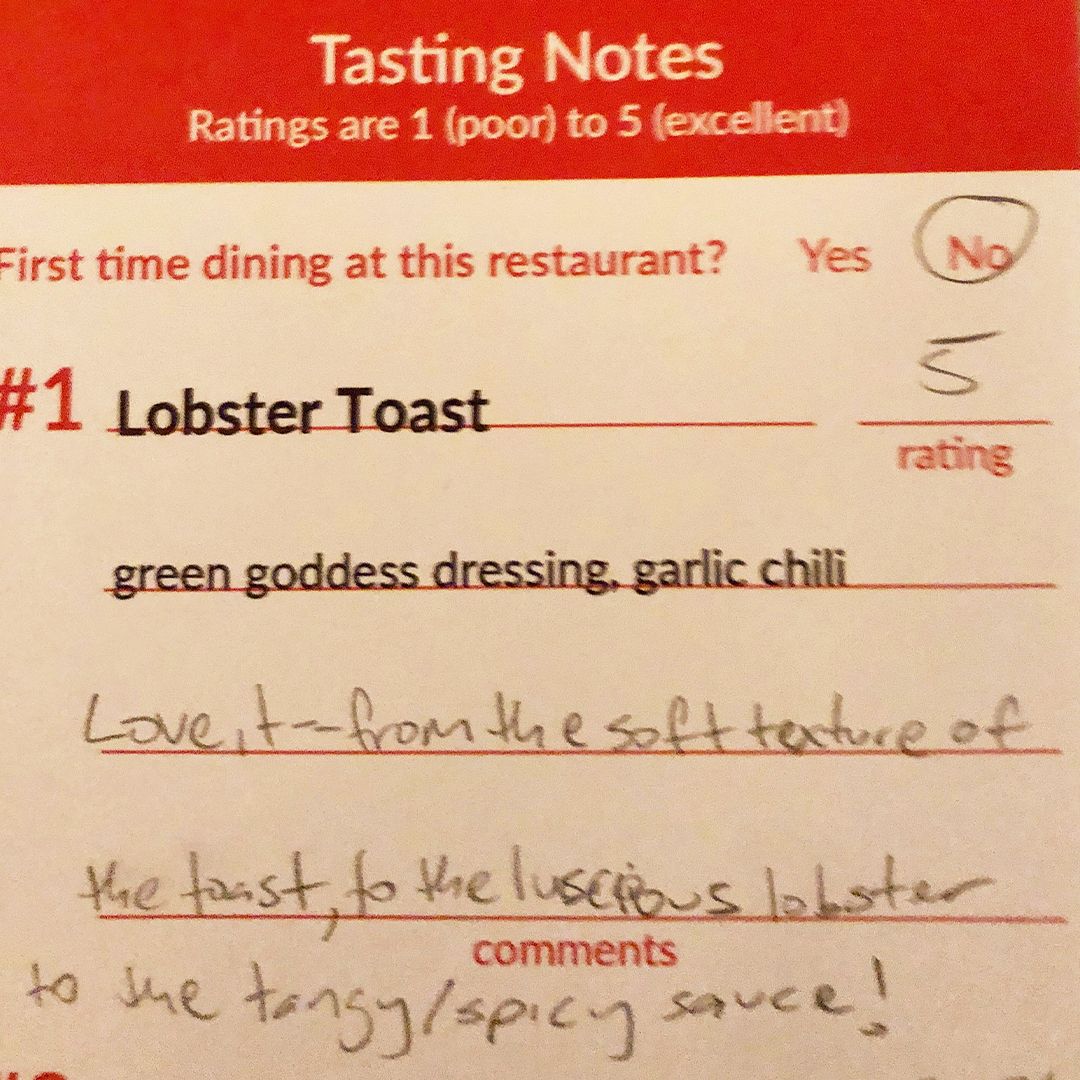 Tasting Notes
Ratings are 1 (poor) to 5 (excellent)
First time dining at this restaurant? Yes No
5
#1 Lobster Toast
rating
green goddess dressing, garlic chili
Love it - from the soft texture of
the toast, to the luscious lobster
comments
to the tangy/spicy sauce!